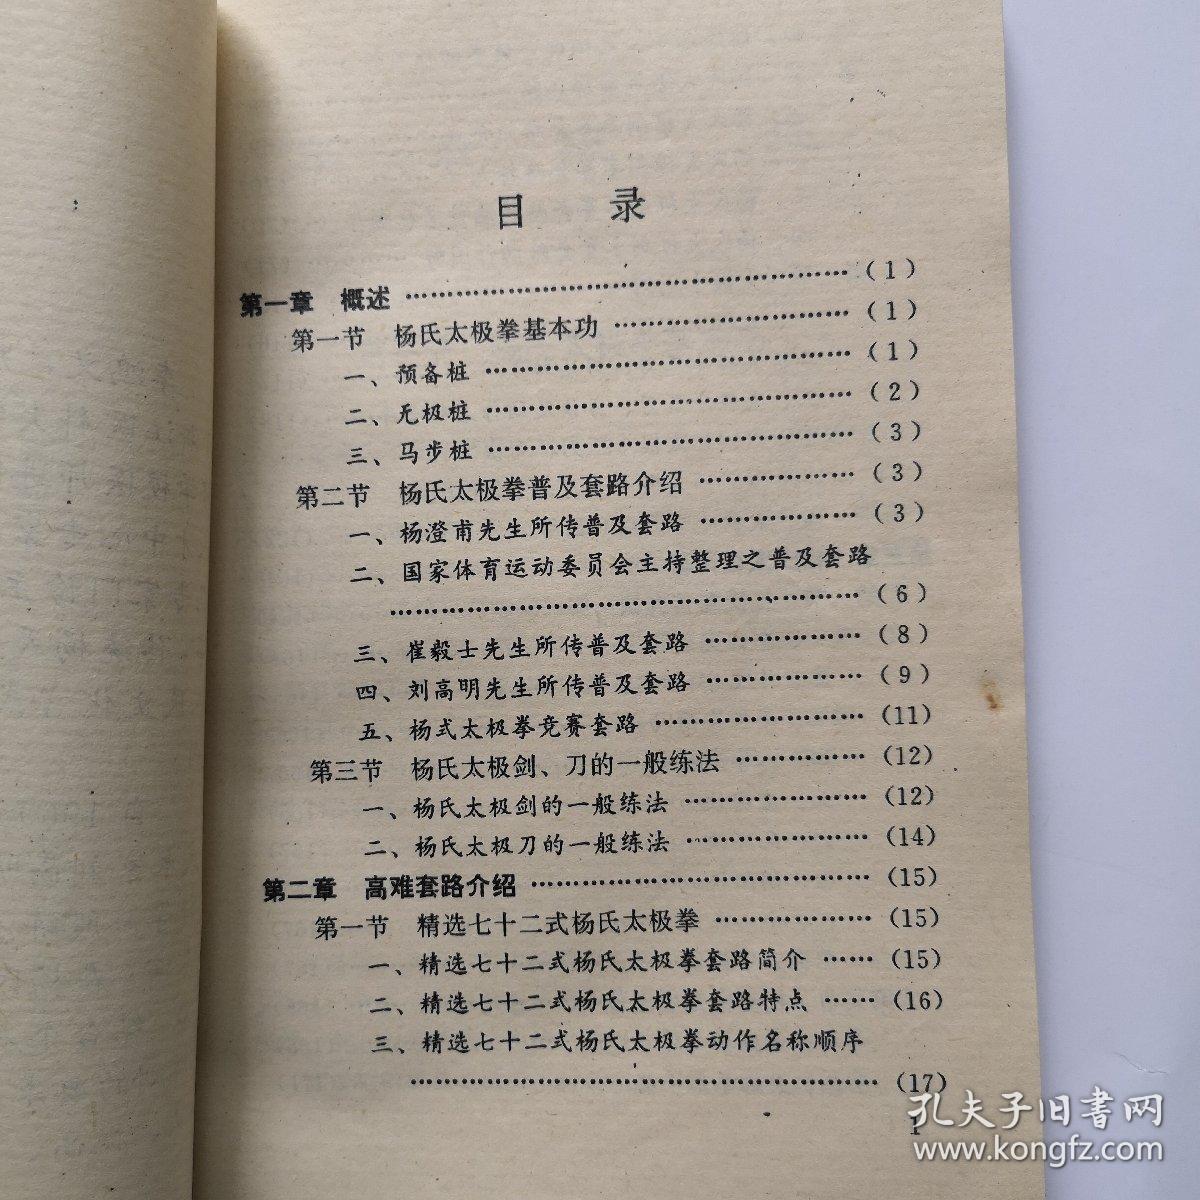 目 录
第一章 概述 ………………………………………………（1）
第一节 杨氏太极拳基本功 …………………………（1）
一、预备桩 ………………………………………（1）
二、无极桩 ………………………………………（2）
三、马步桩 ………………………………………（3）
第二节 杨氏太极拳普及套路介绍 ………………（3）
一、杨澄甫先生所传普及套路 ………………（3）
二、国家体育运动委员会主持整理之普及套路
…………………………………………………（6）
三、崔毅士先生所传普及套路 ………………（8）
四、刘高明先生所传普及套路 ………………（9）
五、杨式太极拳竞赛套路 ……………………（11）
第三节 杨氏太极剑、刀的一般练法 ……………（12）
一、杨氏太极剑的一般练法 …………………（12）
二、杨氏太极刀的一般练法 …………………（14）
第二章 高难套路介绍 …………………………………（15）
第一节 精选七十二式杨氏太极拳 ………………（15）
一、精选七十二式杨氏太极拳套路简介 ……（15）
二、精选七十二式杨氏太极拳套路特点 ……（16）
三、精选七十二式杨氏太极拳动作名称顺序
…………………………………………………（17）
1
孔夫子旧书网
www.kongfz.com